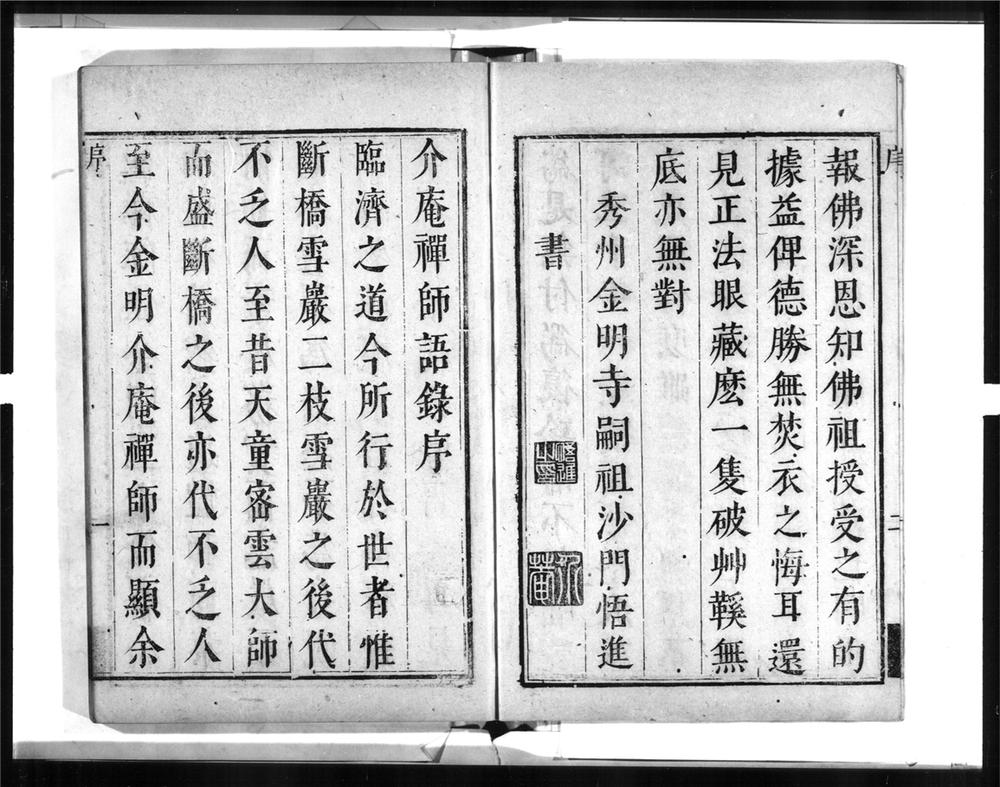 序
二
報佛深恩知佛祖授受之有的
據益俾德勝無焚衣之悔耳還
見正法眼藏麽一隻破艸鞵無
底亦無對
秀州金明寺嗣祖沙門悟進
書
介庵禪師語錄序
臨濟之道今所行於世者惟
斷橋雪巖二枝雪巖之後代
不乏人至昔天童密雲大師
而盛斷橋之後亦代不乏人
至今金明介庵禪師而顯余
序
一